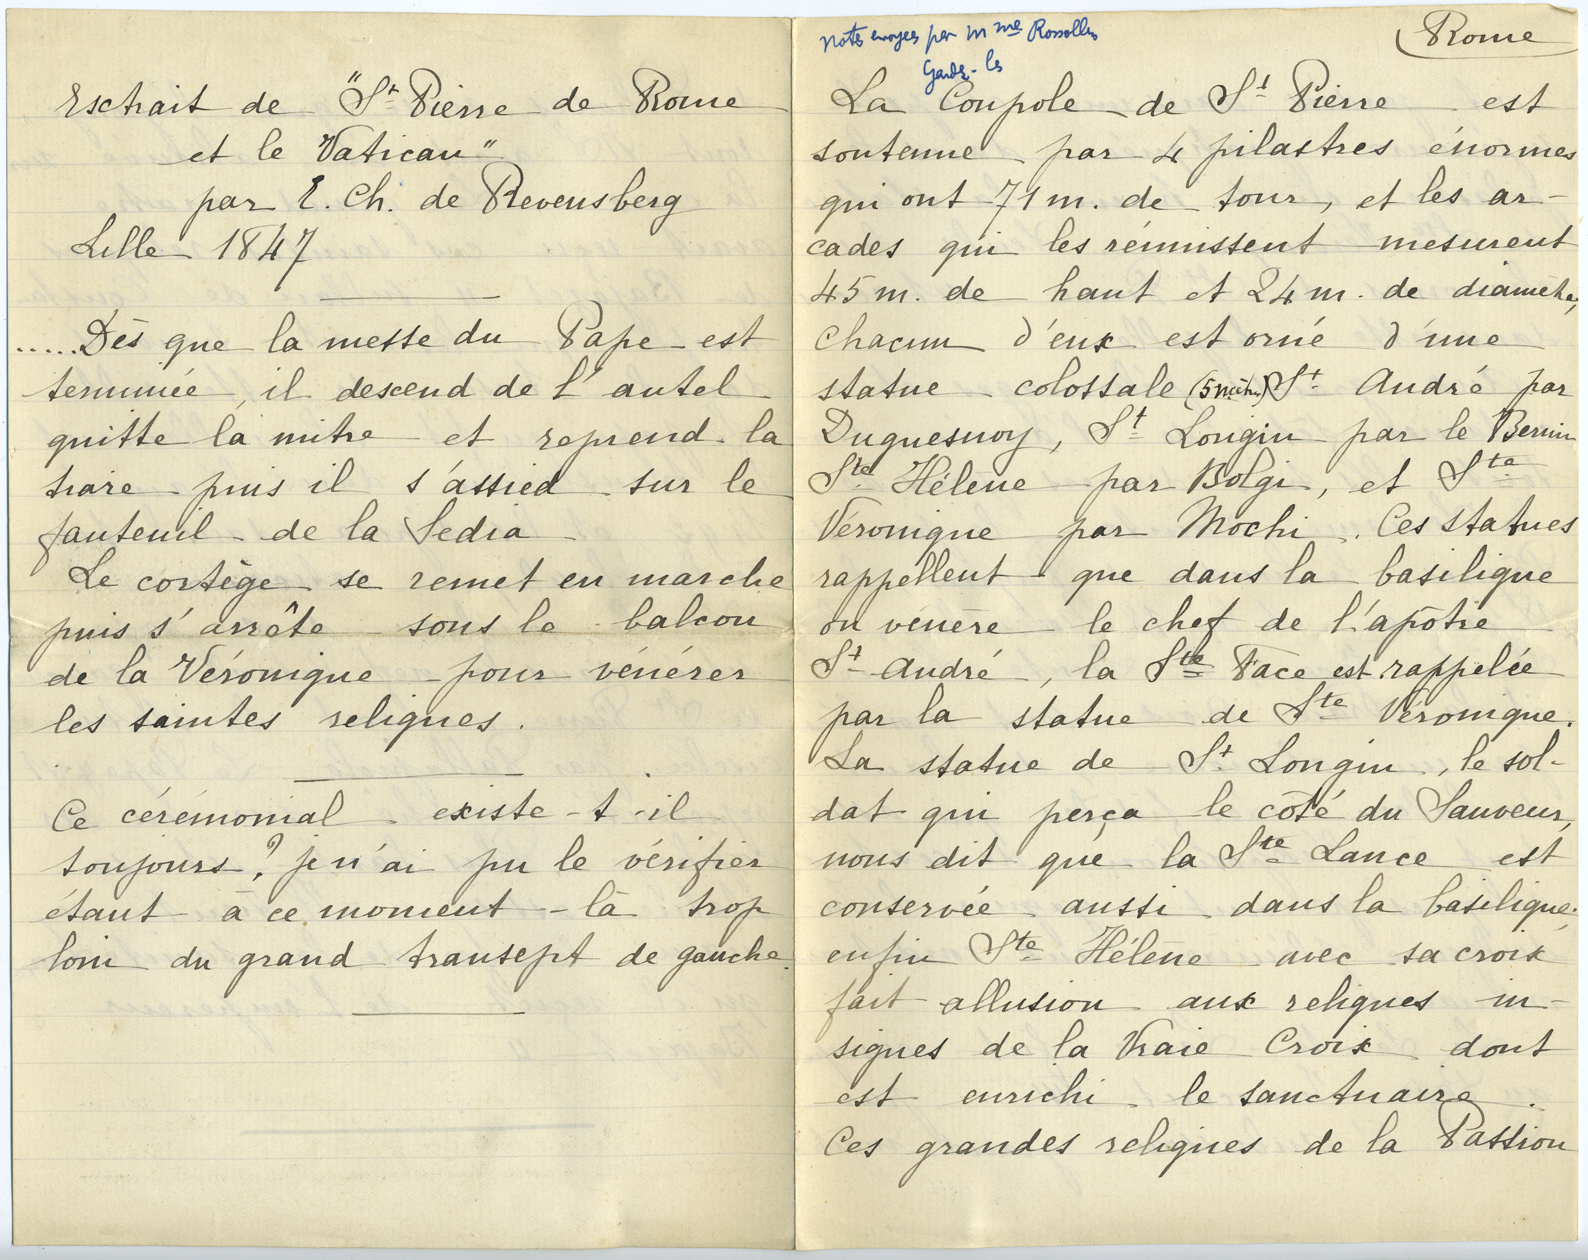 Extrait de "St Pierre de Rome
et le Vatican"
par E. Ch. de Revensberg
Lille 1847
.....Dès que la messe du Pape est
terminée, il descend de l'autel
quitte la mitre et reprend la
tiare puis il s'assied sur le
fauteuil de la Sedia
Le cortège se remet en marche
puis s'arrête sous le balcon
de la Véronique pour vénérer
les saintes reliques.
Ce cérémonial existe-t-il
toujours? je n'ai pu le vérifier
étant à ce moment-là trop
loin du grand transept de gauche.
Notes envoyées par Mme
Gardez-les
Rome
La Coupole de St Pierre est
soutenue par 4 pilastres énormes
qui ont 71 m. de tour, et les ar-
cades qui les réunissent mesurent
45 m. de haut et 24 m. de diamètre,
chacun d'eux est orné d'une
statue colossale (5 mètres) St André par
Duquesnoy, St Longin par le Bernin
Ste Hélène par Bolgi, et Ste
Véronique par Mochi. Ces statues
rappellent que dans la basilique
on vénère le chef de l'apôtre
St André, la Ste Face est rappelée
par la statue de Ste Véronique.
La statue de St Longin, le sol-
dat qui perça le côté du Sauveur,
nous dit que la Ste Lance est
conservée aussi dans la basilique;
enfin Ste Hélène avec sa croix
fait allusion aux reliques in-
signes de la Vraie Croix dont
est enrichi le sanctuaire.
Ces grandes reliques de la Passion